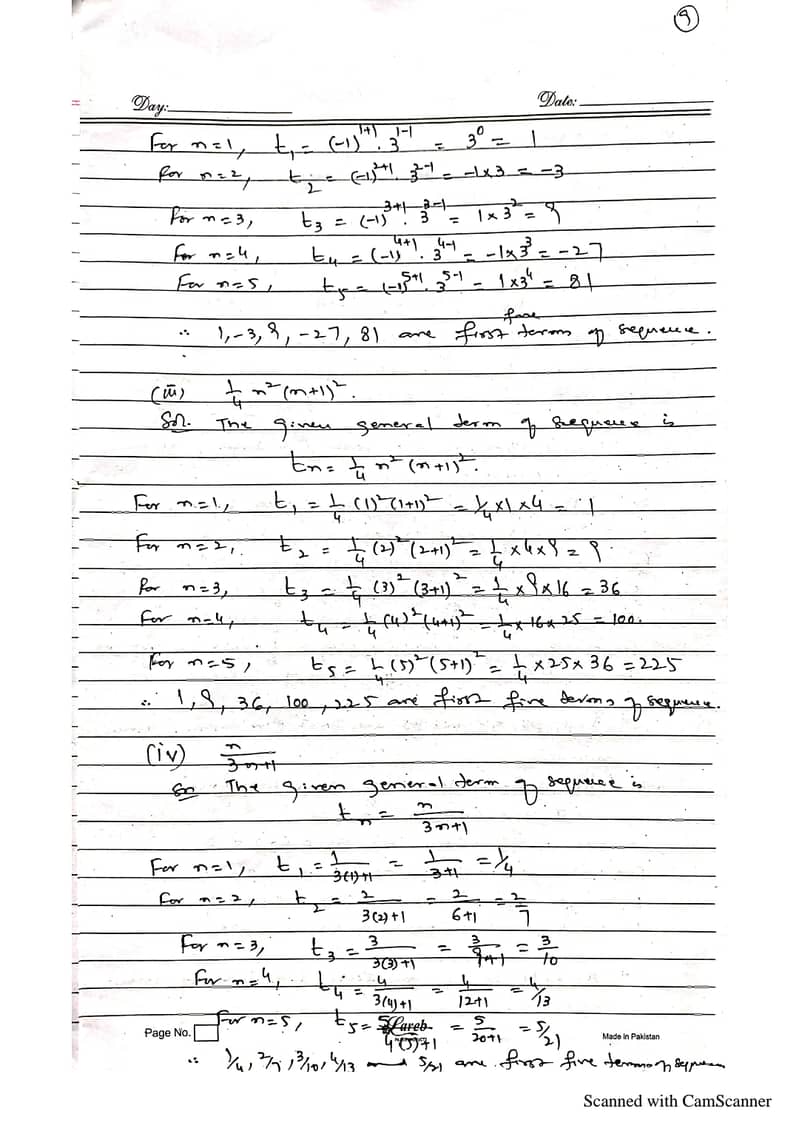 9
Day: Date:
For n=1, t₁ = (-1)¹⁺¹. 3¹⁻¹ = 3⁰ = 1
for n=2, t₂ = (-1)²⁺¹. 3²⁻¹ = -1×3 = -3
For n=3, t₃ = (-1)³⁺¹. 3³⁻¹ = 1×3² = 9
For n=4, t₄ = (-1)⁴⁺¹. 3⁴⁻¹ = -1×3³ = -27
For n=5, t₅ = (-1)⁵⁺¹. 3⁵⁻¹ = 1×3⁴ = 81
∴ 1, -3, 9, -27, 81 are first five terms of sequence.
(iii) 1/4 n²(n+1)².
Sol. The given general term of sequence is
tn = 1/4 n²(n+1)².
For n=1, t₁ = 1/4 (1)²(1+1)² = 1/4 ×1 ×4 = 1
For n=2, t₂ = 1/4 (2)²(2+1)² = 1/4 ×4×9 = 9.
for n=3, t₃ = 1/4 (3)²(3+1)² = 1/4 ×9×16 = 36
For n=4, t₄ = 1/4 (4)²(4+1)² = 1/4 × 16 × 25 = 100.
For n=5, t₅ = 1/4 (5)²(5+1)² = 1/4 ×25×36 = 225
∴ 1, 9, 36, 100, 225 are first five terms of sequence.
(iv) n/3n+1
Sol The given general term of sequence is
tn = n/3n+1
For n=1, t₁ = 1/3(1)+1 = 1/3+1 = 1/4
For n=2, t₂ = 2/3(2)+1 = 2/6+1 = 2/7
For n=3, t₃ = 3/3(3)+1 = 3/9+1 = 3/10
For n=4, t₄ = 4/3(4)+1 = 4/12+1 = 4/13
For n=5, t₅ = 5/4(5)+1 = 5/20+1 = 5/21
Page No. Lareb Made in Pakistan
∴ 1/4, 2/7, 3/10, 4/13 and 5/21 are first five terms of sequence
Scanned with CamScanner